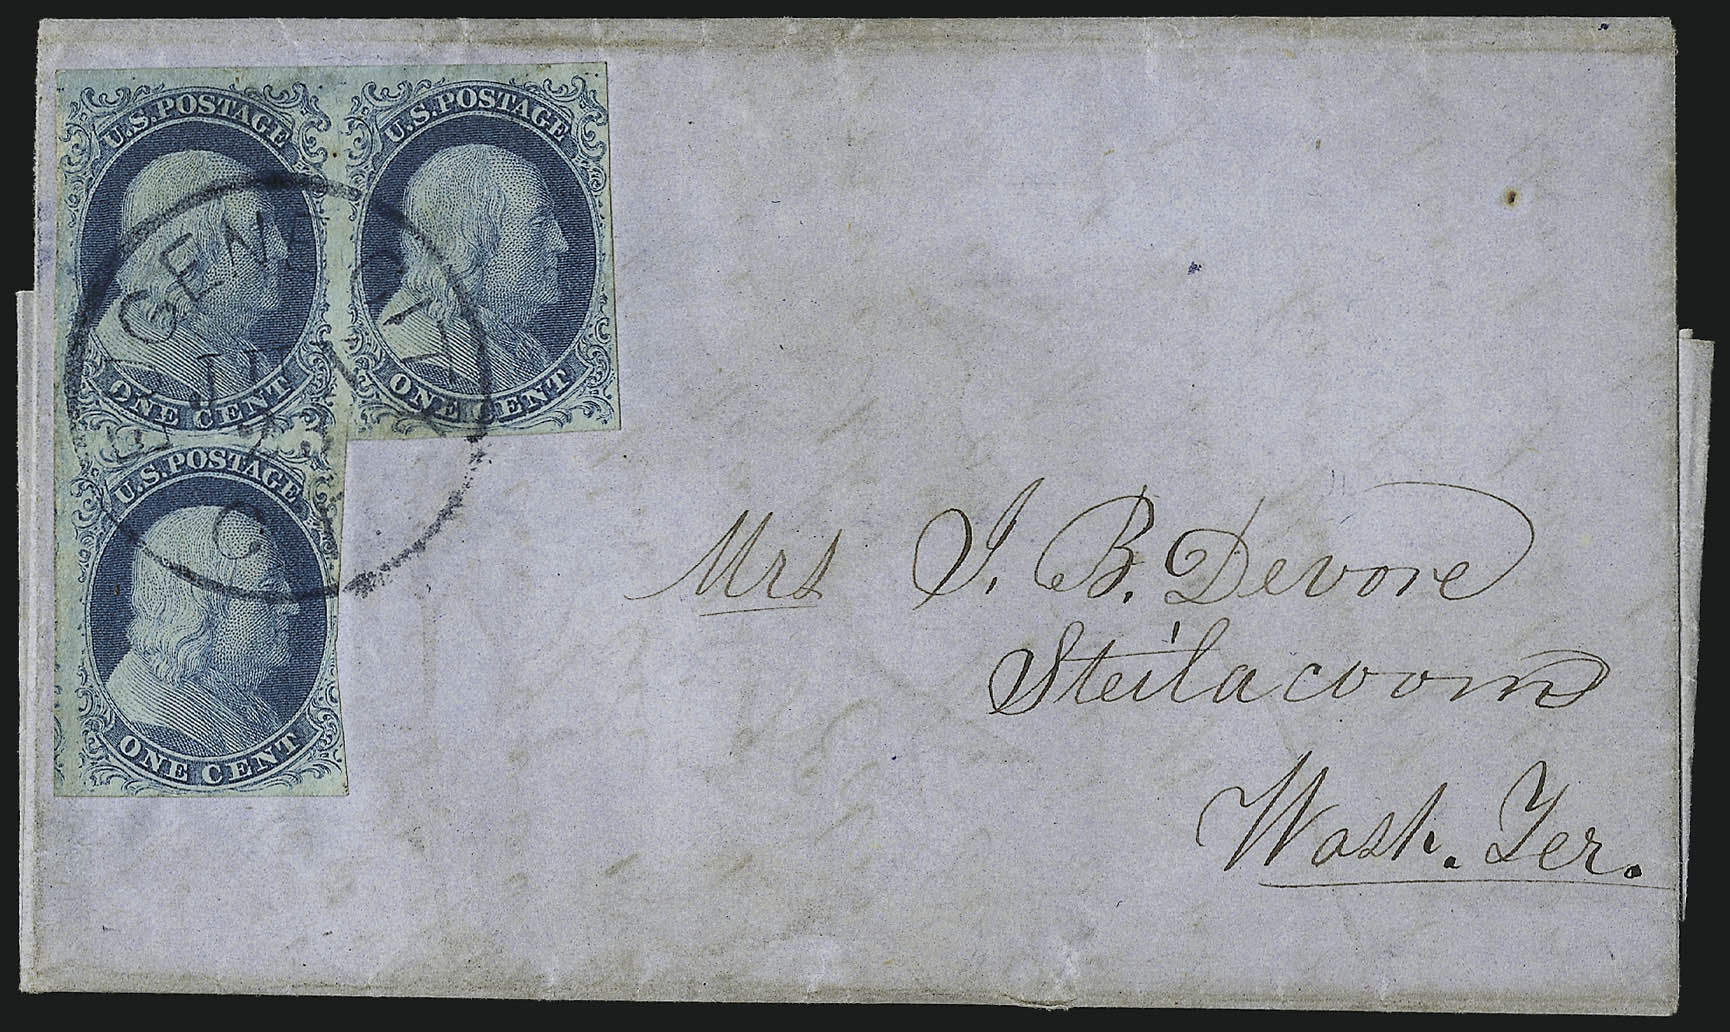 U.S. POSTAGE
ONE CENT
U.S. POSTAGE
ONE CENT
U.S. POSTAGE
ONE CENT
Mrs J. B. Devore
Steilacoom
Wash. Ter.